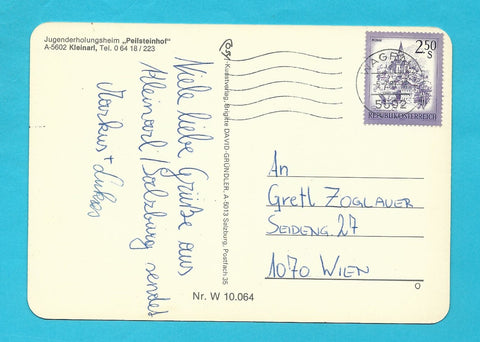 Jugenderholungsheim „Peilsteinhof"
A-5602 Kleinarl, Tel. 0 64 18 / 223
Viele liebe Grüße aus
Kleinarl/Salzburg sendet
Markus + Lukas
Kunstverlag, Brigitte DAVID-GRÜNDLER, A-5013 Salzburg, Postfach 35
Nr. W 10.064
2.50
S
REPUBLIK ÖSTERREICH
WAGRAIN
An
Gretl ZOGLAUER
SEIDENG. 27
1070 WIEN